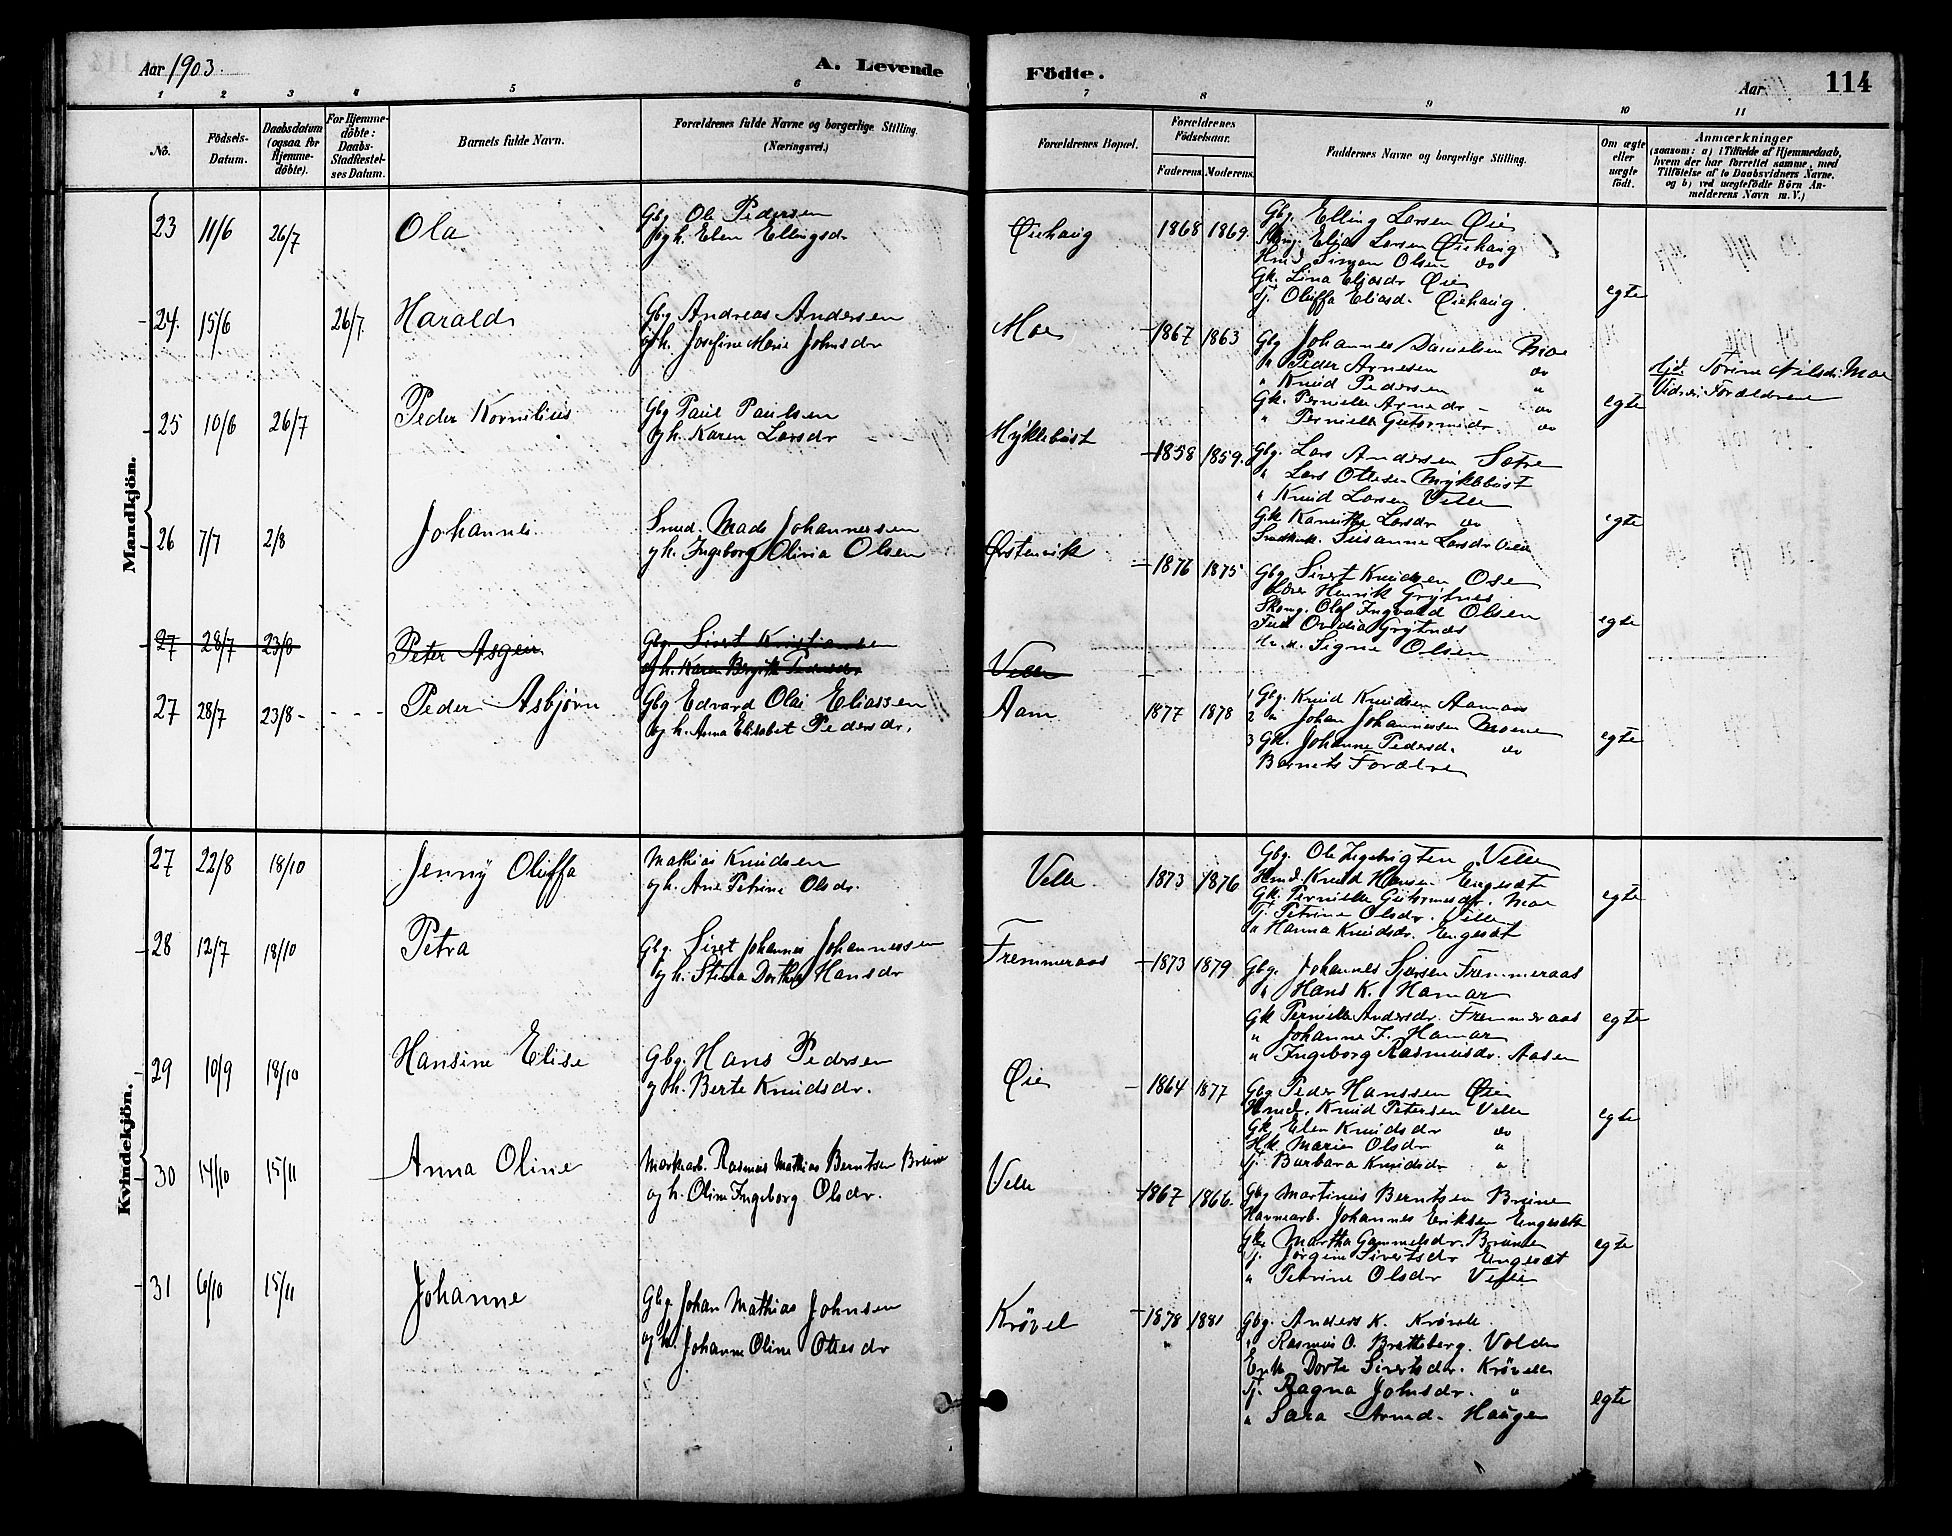 Aar 1903.
A. Levende
Födte.
Aar
114
1 2 3 4 5 6 7 8 9 10 11
No.
Födsels-
Datum.
Daabsdatum
(ogsaa for
Hjemme-
döbte).
For Hjemme-
döbte:
Daabs-
Stadfæstel-
ses Datum.
Barnets fulde Navn.
Forældrenes fulde Navne og borgerlige Stilling.
(Næringsvei.)
Forældrenes Bopæl.
Forældrenes
Födselsaar.
Faderens. Moderens.
Faddernes Navne og borgerlige Stilling.
Om ægte
eller
uægte
födt.
Anmærkninger
(saasom: a) i Tilfælde af Hjemmedaab,
hvem der har forrettet samme, med
Tilföielse af to Daabsvidners Navne.
og b) ved uægtefödte Börn An-
melderens Navn m. V.)
Mandkjön.
23 11/6 26/7 Ola
Gbg Ole Pedersen
og h. Elen Ellingsdr
Øiehaug 1868 1869
Gbg. Elling Larsen Øie
Elias Larsen Øiehaug
Simon Olsen do
Gk. Lina Eliasdr Øie
Tj. Oluffa Eliasd. Øiehaug
egte
24. 15/6 26/7. Harald
Gbg Andreas Andersen
og h. Josefine Marie Johnsdr
Moe 1867 1863
Gbg Johannes Danielsen Moe
" Peder Arnesen do
" Knud Pedersen "
Gk. Pernille Arnedr - do
" Pernille Gutormsdr. do
egte
Hjd. Torine Nilsdr. Moe
Vidner: Forældrene
25 10/6 26/7 Peder Kornelius
Gbg Paul Paulsen
og h. Karen Larsdr
Myklebust 1858 1859.
Gbg. Lars Andersen Sætre
" Lars Ottesen Myklebust
" Knud Larsen Velle
Gk Larsdr do
Susanne Larsdr Velle
egte
26 7/7 2/8 Johannes
Smed. Mads Johannessen
og h. Ingeborg Olivia Olsen
Ørstenvik 1876 1875
Gbg Sivert Knudsen Ose
Lærer Henrik Grytnes
Skomg. Olaf Ingvald Olsen
Ovidia Grytnes
Signe Olsen
egte
27 28/7 23/8 Peter Asgeir
Gbg. Sivert Kristiansen
og h. Karen Bergitte Pedersdr
Velle
27 28/7 23/8 - - - - Peder Asbjørn
Gbg Edvard Olai Eliassen
og h. Anna Elisabet Pedersdr.
Aam 1877 1878
1 Gbg. Knud Knudsen Aamaas
2 do Johan Johannessen Moene
3 Gk. Johanne Pedersd. do
Barnets Forældre
egte
Kvindekjön.
27 22/8 18/10 Jenny Oluffa
Mathias Knudsen
og h. Ane Petrine Olsdr.
Velle. 1873 1876
Gbg. Ole Ingebrigtsen Velle
Knud Hansen Engesæt
Gk. Pernille Gutormsdr. Moe
Tj. Petrine Olsdr. Velle
" Hanna Knudsdr. Engesæt
egte
28 12/7 18/10 Petra
Gbg. Sivert Johannes Johannessen
og h. Stina Dorthea Hansdr
Fremmeraas 1873 1879
Gbg. Johannes Sjursen Fremmeraas
" Hans K. Hamar
Gk Pernille Andersdr. Fremmeraas
" Johanne J. Hamar
" Ingeborg Rasmusdr. Aasen
egte
29 10/9 18/10 Hansine Elise
Gbg. Hans Pedersen
og h. Berte Knudsdr.
Øie 1864 1877
Gbg Peder Hanssen Øie
Knud Petersen Velle
Gk Elen Knudsdr do
Hk. Marie Olsdr "
Tj. Barbara Knudsdr "
egte
30 14/10 15/11 Anna Oline
Rasmus Mathias Berntsen Brune
og h. Oline Ingeborg Olsdr.
Velle 1867 1866.
Gbg Martinus Berntsen Brune
Havnearb. Johannes Eriksen Engesæt
Gk Martha Gammelsdr. Brune
Tj. Jørgine Sivertsdr Engesæt
" Petrine Olsdr Velle
egte
31 6/10 15/11 Johanne
Gbg. Johan Mathias Johnsen
og h. Johanne Oline Ottesdr
Krøvel 1878 1881
Gbg. Anders K. Krøvel.
" Rasmus O. Bratteberg. Volden
Dorte Sivertsdr. Krøvelle
Tj. Ragna Johnsdr. "
" Sara Arned. Haugen
egte